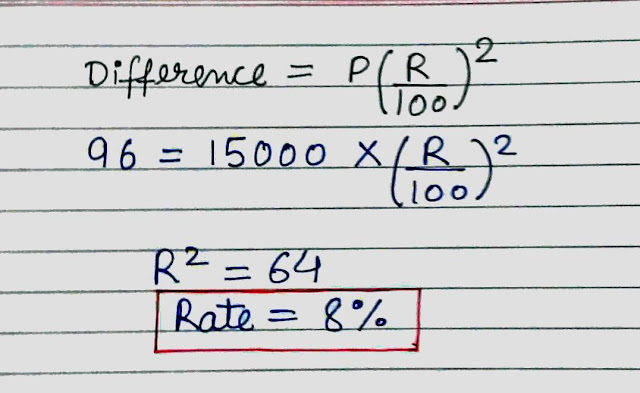 Difference = P(R/100)²
96 = 15000 × (R/100)²
R² = 64
Rate = 8%